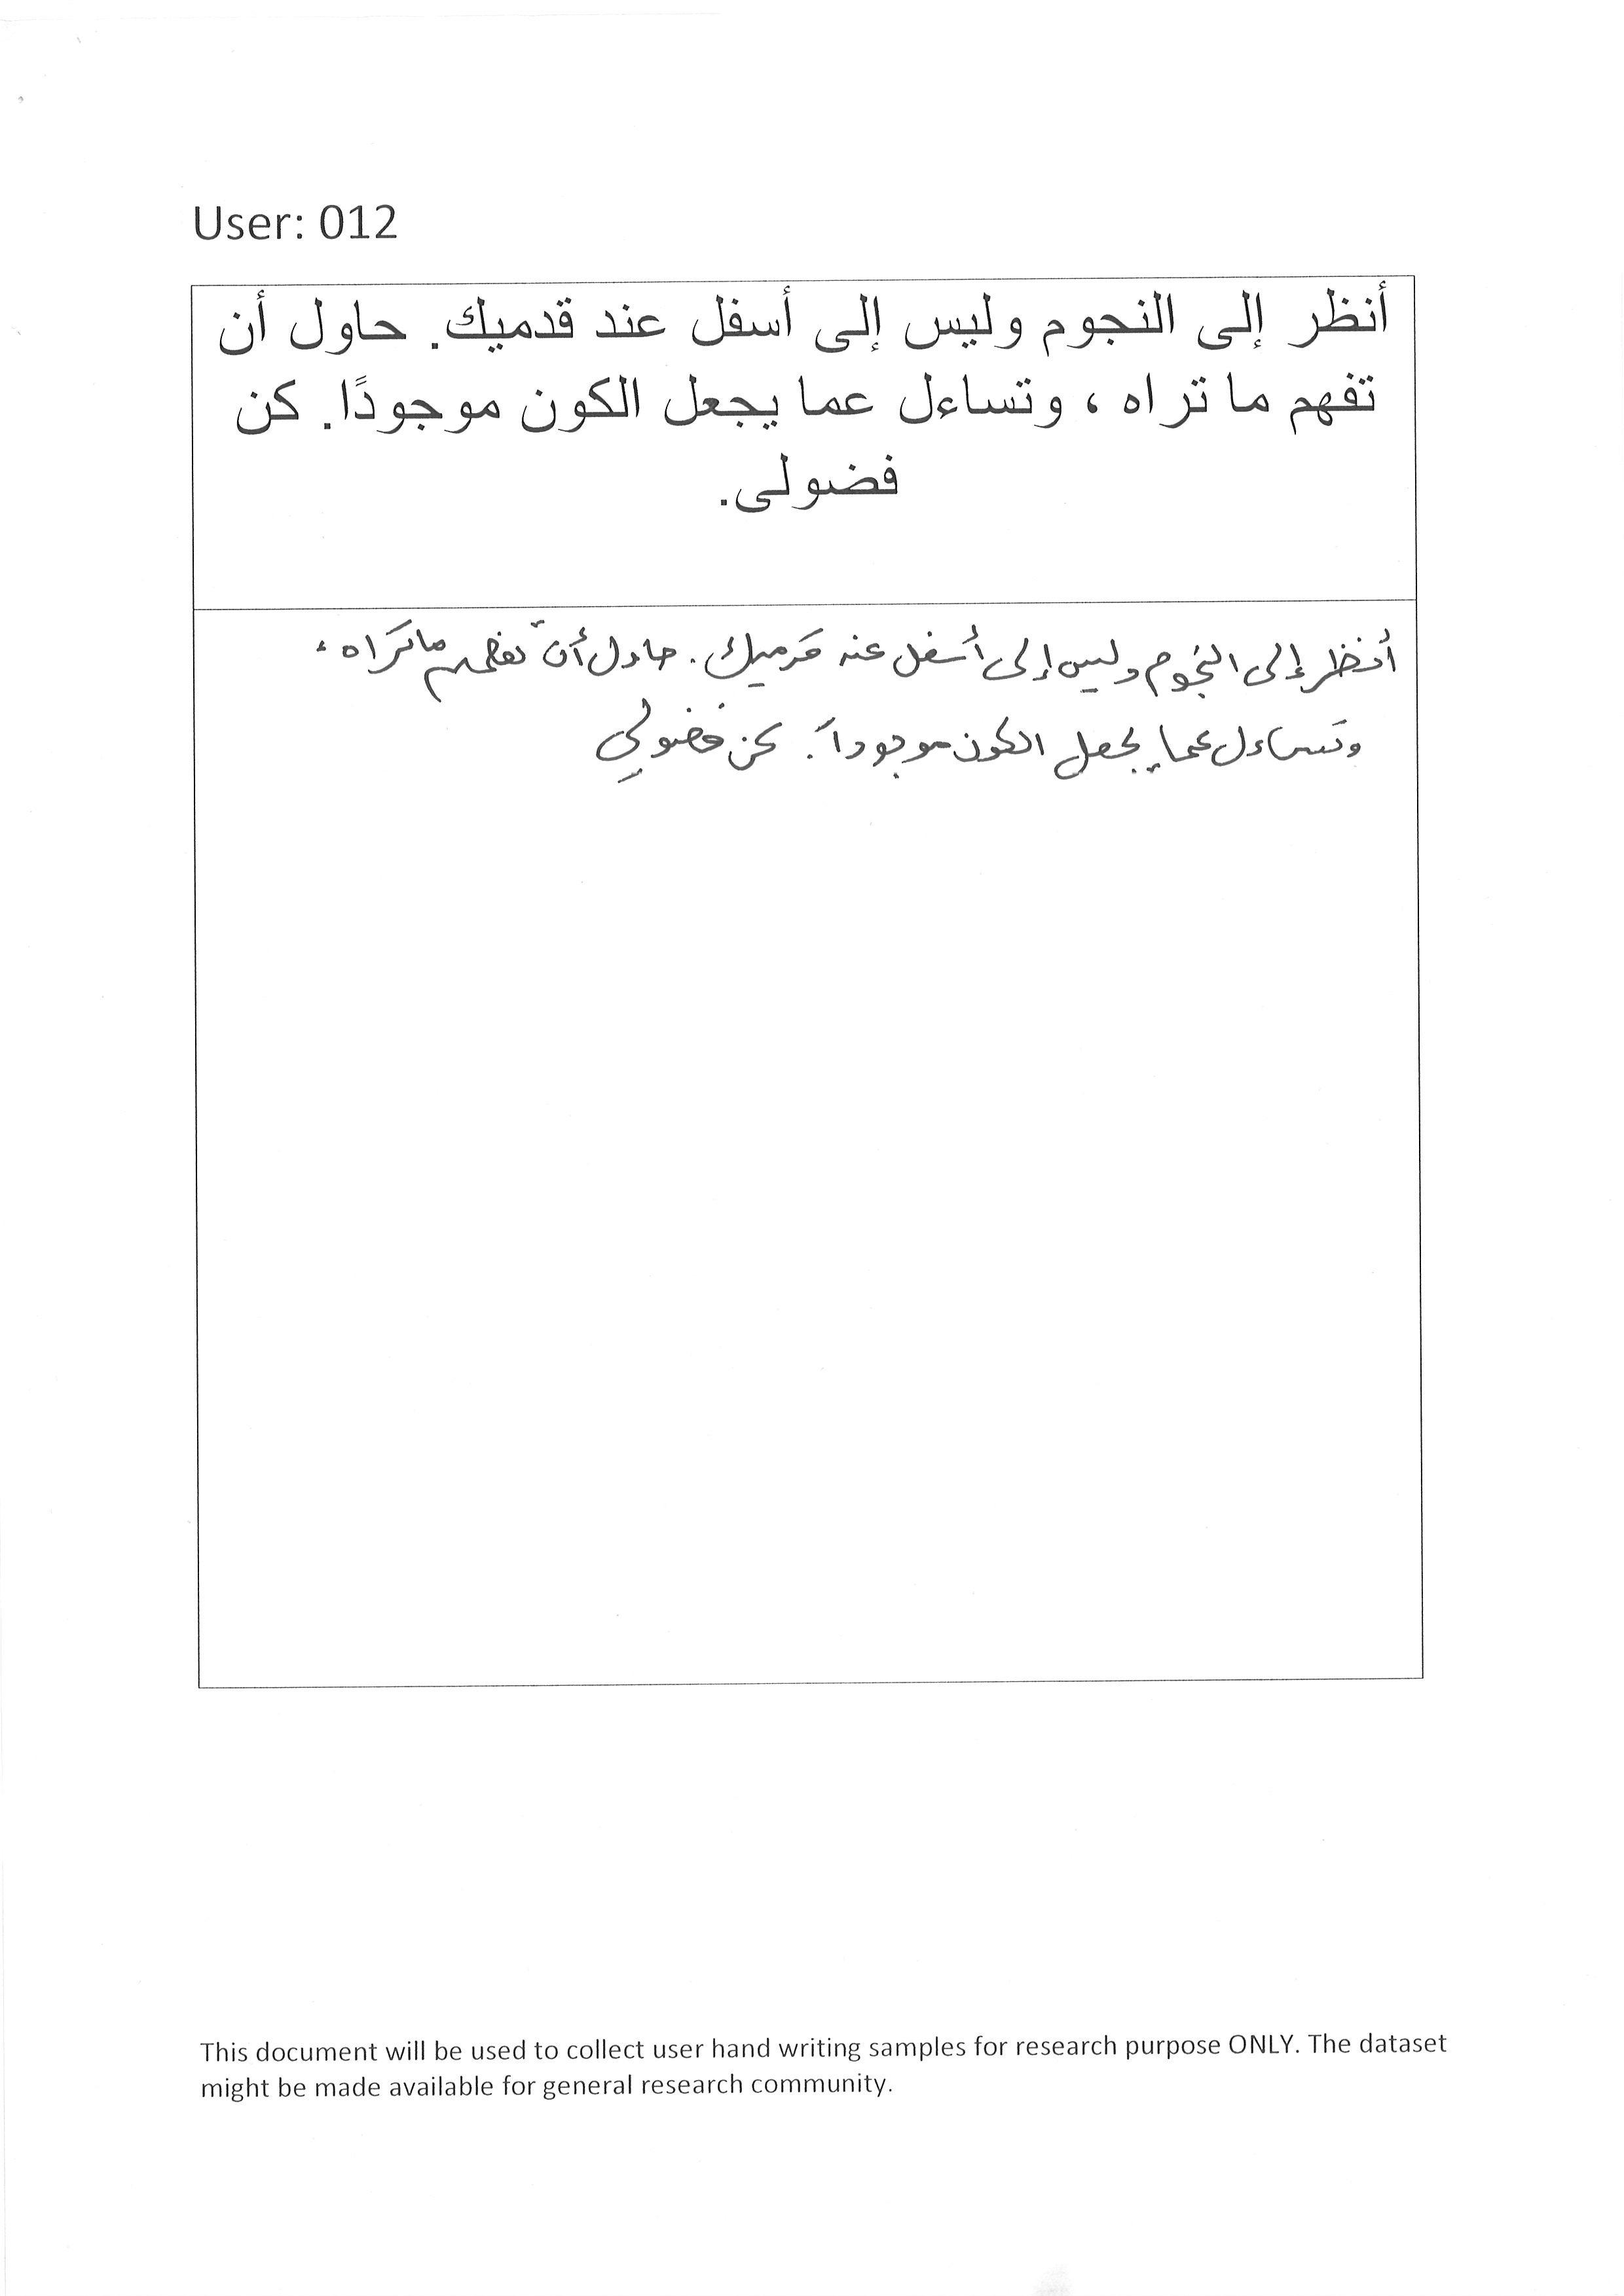 User: 012
أنظر إلى النجوم وليس إلى أسفل عند قدميك. حاول أن
تفهم ما تراه ، وتساءل عما يجعل الكون موجودًا. كن
فضولى.
أنظر إلى النجوم وليس إلى أسفل عند قدميك. حاول أن تفهم ما تراه ،
وتساءل عما يجعل الكون موجوداً. كن فضولي
This document will be used to collect user hand writing samples for research purpose ONLY. The dataset
might be made available for general research community.